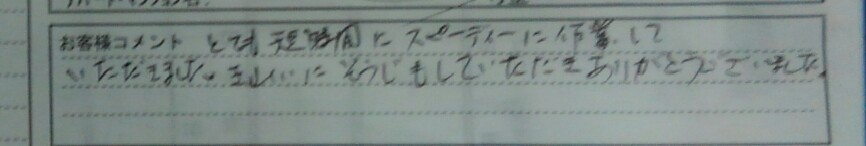 お客様コメント とても短時間にスピーディーに作業して
いただきました。きれいにそうじもしていただきありがとうございました。